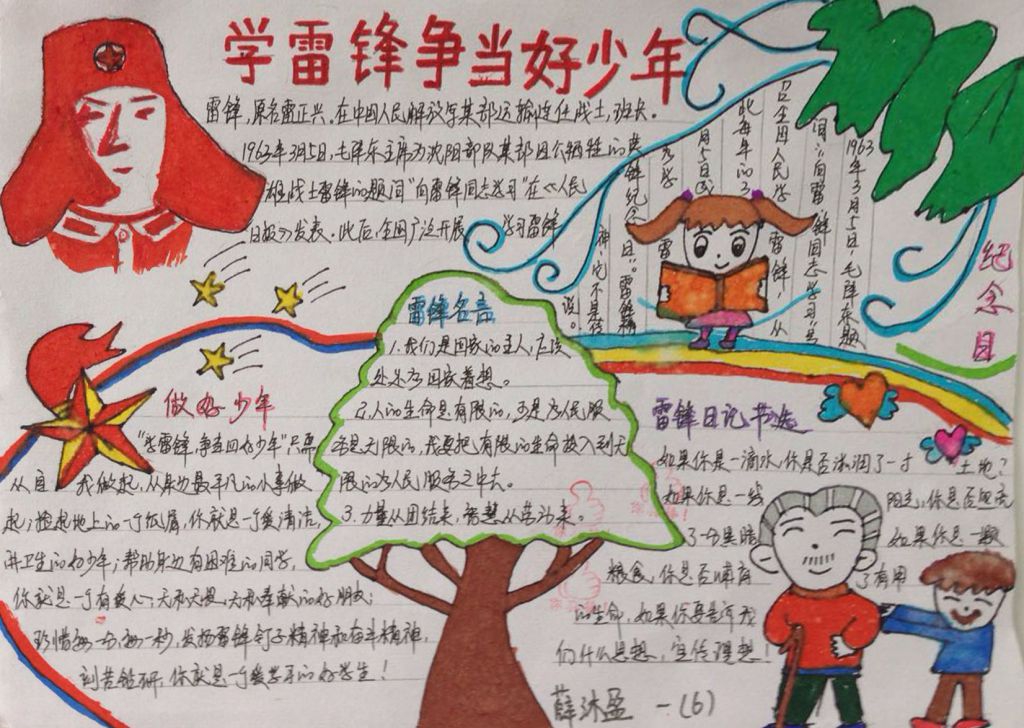 学雷锋争当好少年
雷锋,原名雷正兴。在中国人民解放军某部运输连任战士,班长。
1963年3月5日,毛泽东主席为沈阳部队某部因公牺牲的英
雄战士雷锋的题词"向雷锋同志学习"在《人民
日报》发表。此后,全国广泛开展 学习雷锋
纪念日
1963年3月5日,毛泽东题
词:"向雷锋同志学习"
全国人民学雷锋,从
此每年的3
月5日
雷锋纪念日"。雷锋精
神,它不是传
说。
雷锋名言
1.我们是国家的主人,应该
处处为国家着想。
2.人的生命是有限的,可是为人民服
务是无限的,我要把有限的生命投入到无
限的为人民服务之中去。
3.力量从团结来,智慧从劳动来。
做好少年
"学雷锋,争当好少年"只要
从自我做起,从身边最平凡的小事做
起;捡起地上的一个纸屑,你就是一个爱清洁,
讲卫生的好少年;帮助身边有困难的同学,
你就是一个有爱心,
珍惜每一分,每一秒,发扬雷锋钉子精神和奋斗精神,
刻苦钻研,你就是一个爱学习的好学生!
雷锋日记节选
如果你是一滴水,你是否滋润了一寸土地?
如果你是一线阳光,你是否照亮
了一分黑暗 如果你是一颗
粮食,你是否哺育了有用
的生命,如果你要告诉我
们什么思想,宣传理想!
薛沐盈 一(6)